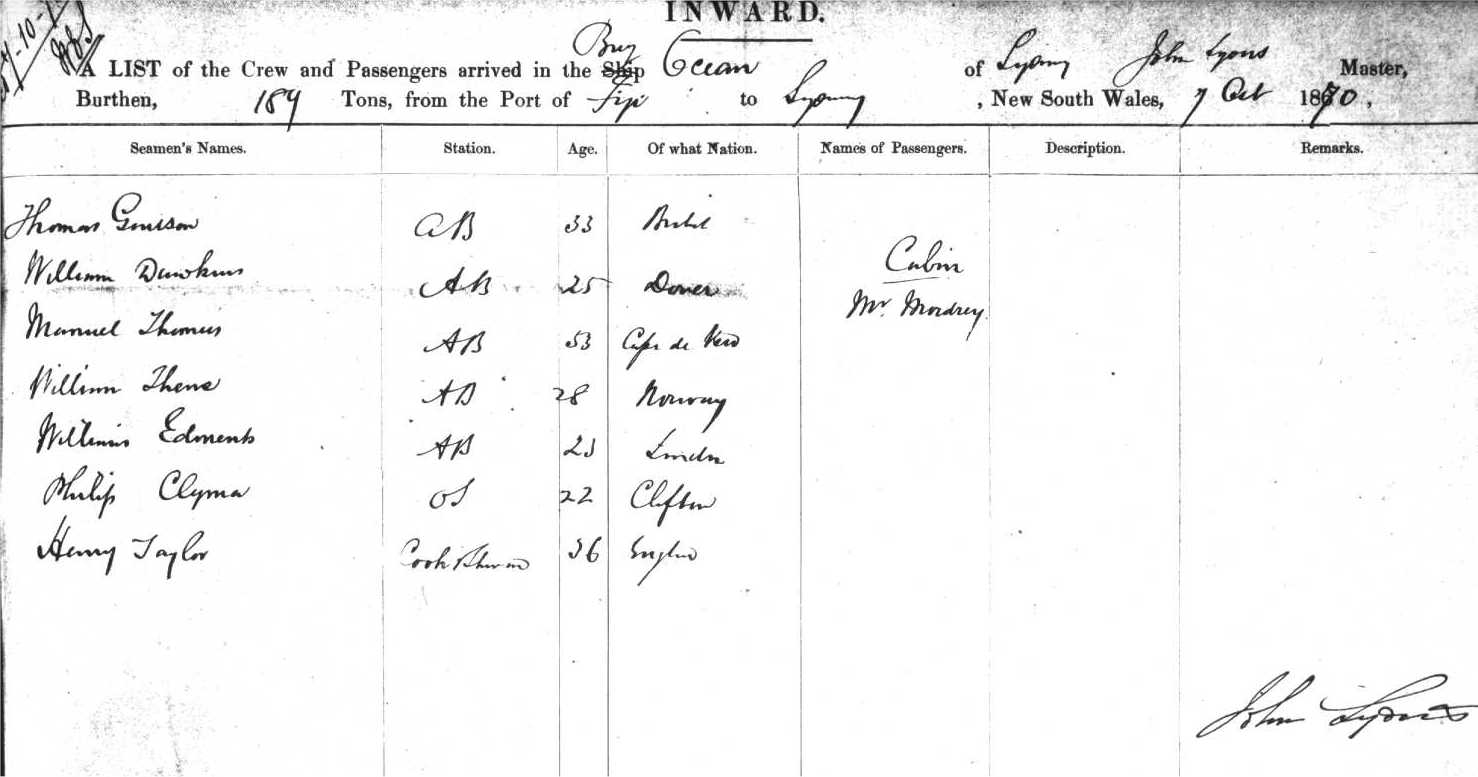 INWARD.
Brig
A LIST of the Crew and Passengers arrived in the Ship Ocean of Sydney John Lyons Master,
Burthen, 189 Tons, from the Port of Fiji to Sydney, New South Wales, 7 Oct 1870,
Seamen's Names. Station. Age. Of what Nation. Names of Passengers. Description. Remarks.
Thomas AB 33 Bristol
Cabin
William Dawkins AB 25 Dover
Mr.
Manuel Thomas AB 53 Cape de Verd
William AB 28 Norway
William Edments AB 23 London
Philip Clyma OS 22 Clifton
Henry Taylor Cook 36 England
John Lyons